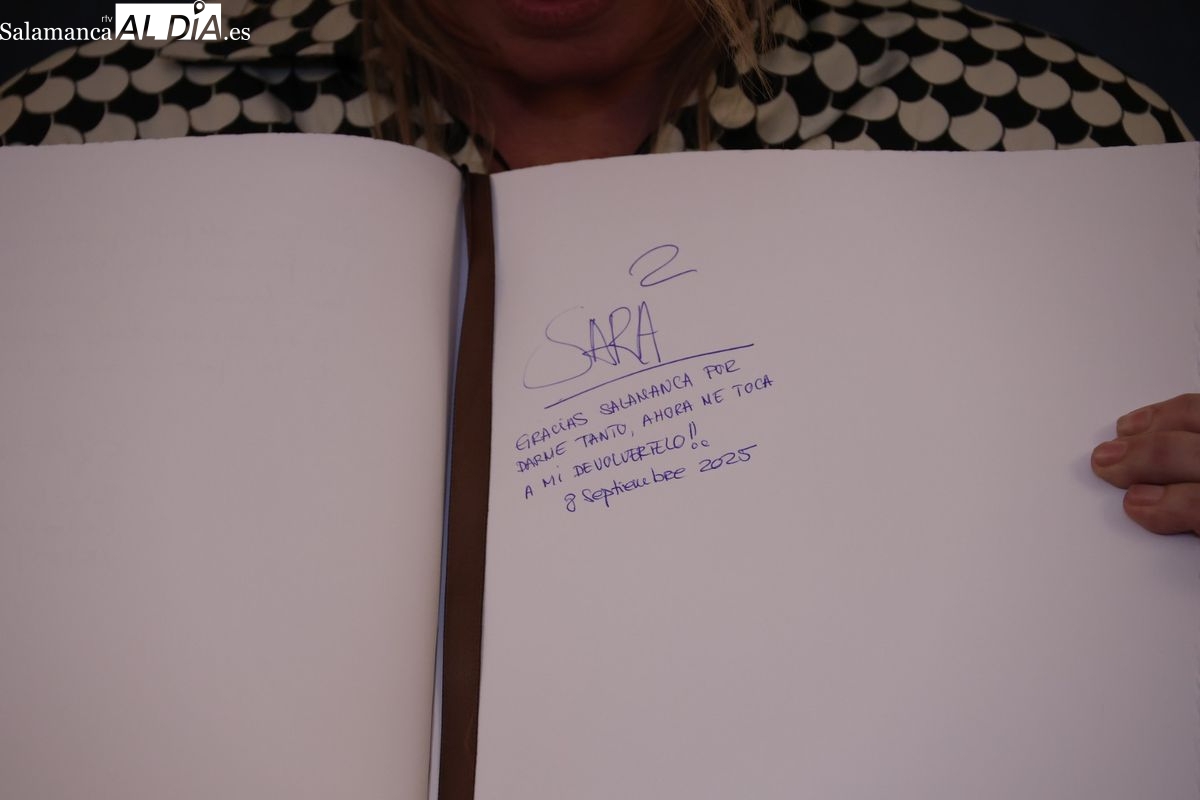 Salamanca rtv AL DÍA .es
2
SARA
GRACIAS SALAMANCA POR
DARME TANTO, AHORA ME TOCA
A MI DEVOLVERTELO!!
8 Septiembre 2025